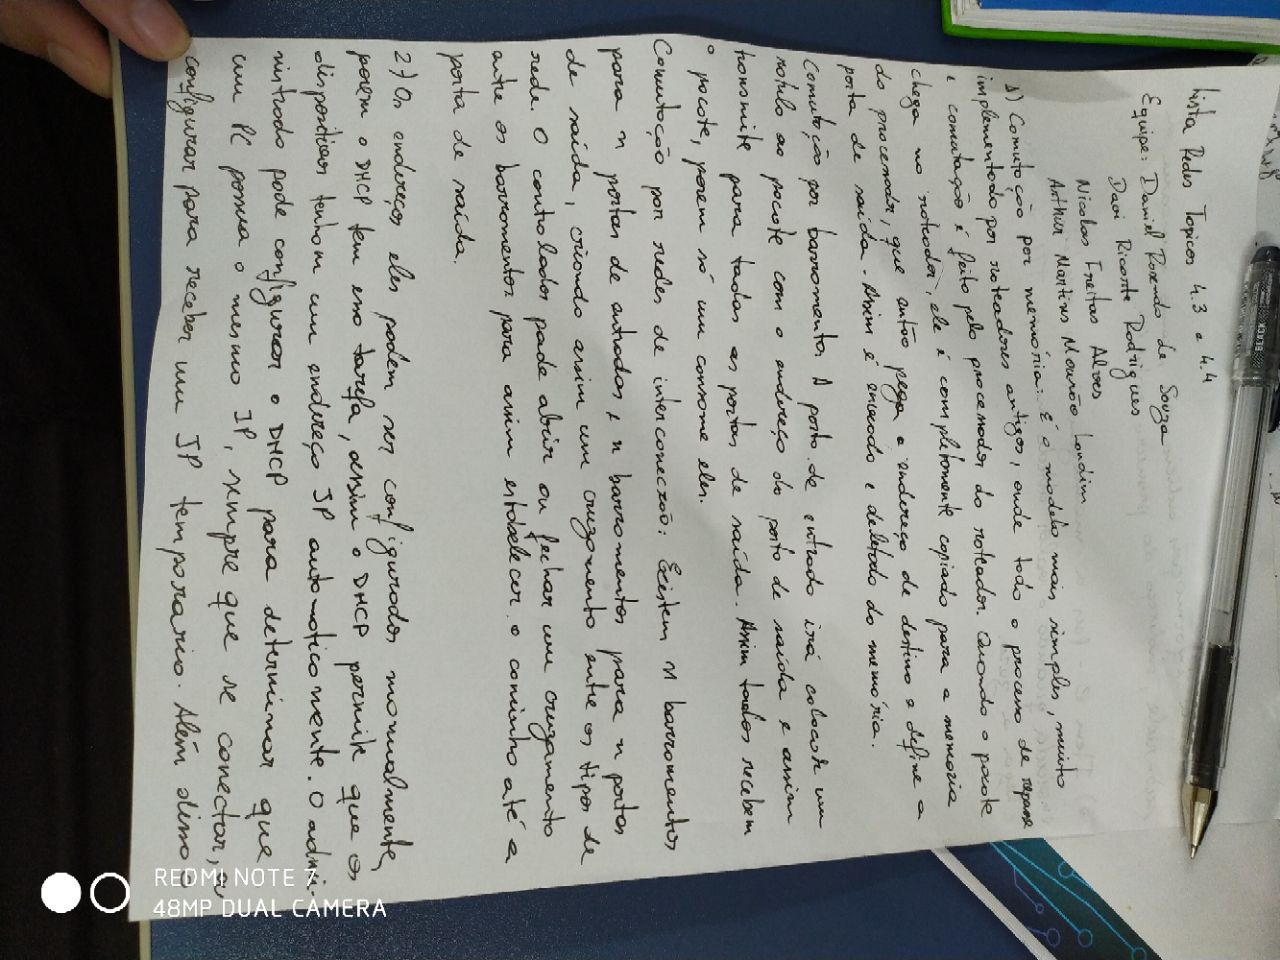 Lista Redes Topicos 4.3 e 4.4
Equipe: Daniel Rosendo de Souza
Davi Ricarte Rodrigues
Nicolas Freitas Alves
Arthur Martins Mourão Londim
1) Comutação por memória: É o modelo mais simples, muito
implementado por roteadores antigos, onde todo o processo de repasse
e comutação é feito pelo processador do roteador. Quando o pacote
chega no roteador, ele é completamente copiado para a memoria
do processador, que então pega o endereço de destino e define a
porta de saída. Assim é enviado e deletado da memória.
Comutação por barramento: A porta de entrada irá colocar um
rotulo ao pacote com o endereço da porta de saída e assim
transmite para todas as portas de saída. Assim todos recebem
o pacote, porem só um consome eles.
Comutação por redes de interconecxão: Existem n barramentos
para n portas de entradas e n barramentos para n portas
de saída, criando assim um cruzamento entre os tipos de
rede. O controlador pode abrir ou fechar um cruzamento
entre os barramentos para assim estabelecer o caminho até a
porta de saída.
2) Os endereços eles podem ser configurados manualmente,
porem o DHCP tem essa tarefa, assim o DHCP permite que os
dispositivos tenham um endereço IP automaticamente. O admi-
nistrado pode configurar o DHCP para determinar que
um PC possua o mesmo IP, sempre que se conectar, ou
configurar para receber um IP temporario. Além disso o
REDMI NOTE 7
48MP DUAL CAMERA